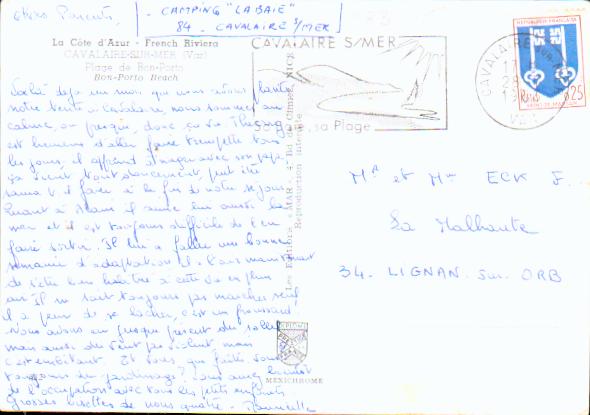 Chers Parents,
- CAMPING "LA BAIE"
84 - CAVALAIRE S/MER
La Côte d'Azur - French Riviera
CAVALAIRE-SUR-MER (Var)
Plage de Bon-Porto
Bon-Porto Beach
Voilà déjà un mois que nous avons planté
notre tente à Cavalaire, nous sommes au
calme, ou presque, donc ça va. Thierry
est heureux d'aller faire trempette tous
les jours, il apprend à nager avec son papa,
ça vient tout doucement, peut être
saura t-il faire à la fin de notre séjour
Quant à Alain il aime lui aussi la
mer et il est toujours difficile de l'en
faire sortir. Il lui a fallu une bonne
semaine d'adaptation il a l'air maintenant
de s'être bien habitué à cette vie en plein
air. Il ne sait toujours pas marcher seul
il a peur de se lâcher, c'est un froussard.
Nous avons eu presque du soleil
mais aussi du vent pas violent, mais
c'est embêtant. Et vous, que faites vous
toujours du jardinage? Vous avez
de l'occupation avec tous les petits enfants
Grosses bisettes de nous quatre -
Les Editions « MAR »
NICE
Reproduction interdite
MEXICHROME
CAVALAIRE S/MER
Sa Baie, sa Plage
CAVALAIRE
VAR
REPUBLIQUE FRANÇAISE
0,25
MONT-DE-MARSAN
Mr et Mme ECK F.
La Malhaute
34 - LIGNAN sur ORB